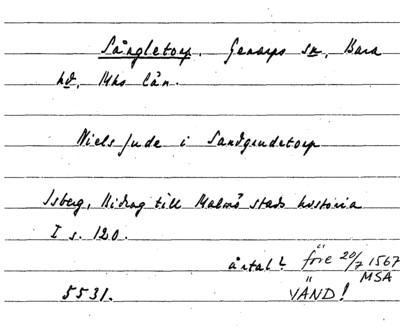 Sångletorp. Genarps sn, Bara
hd, Mhs län.
Niels Jude i Sandgrudetorp
Isberg, Bidrag till Malmö stads historia
I s. 120.
årtal? före 20/7 1567
MSA
5531. VÄND!